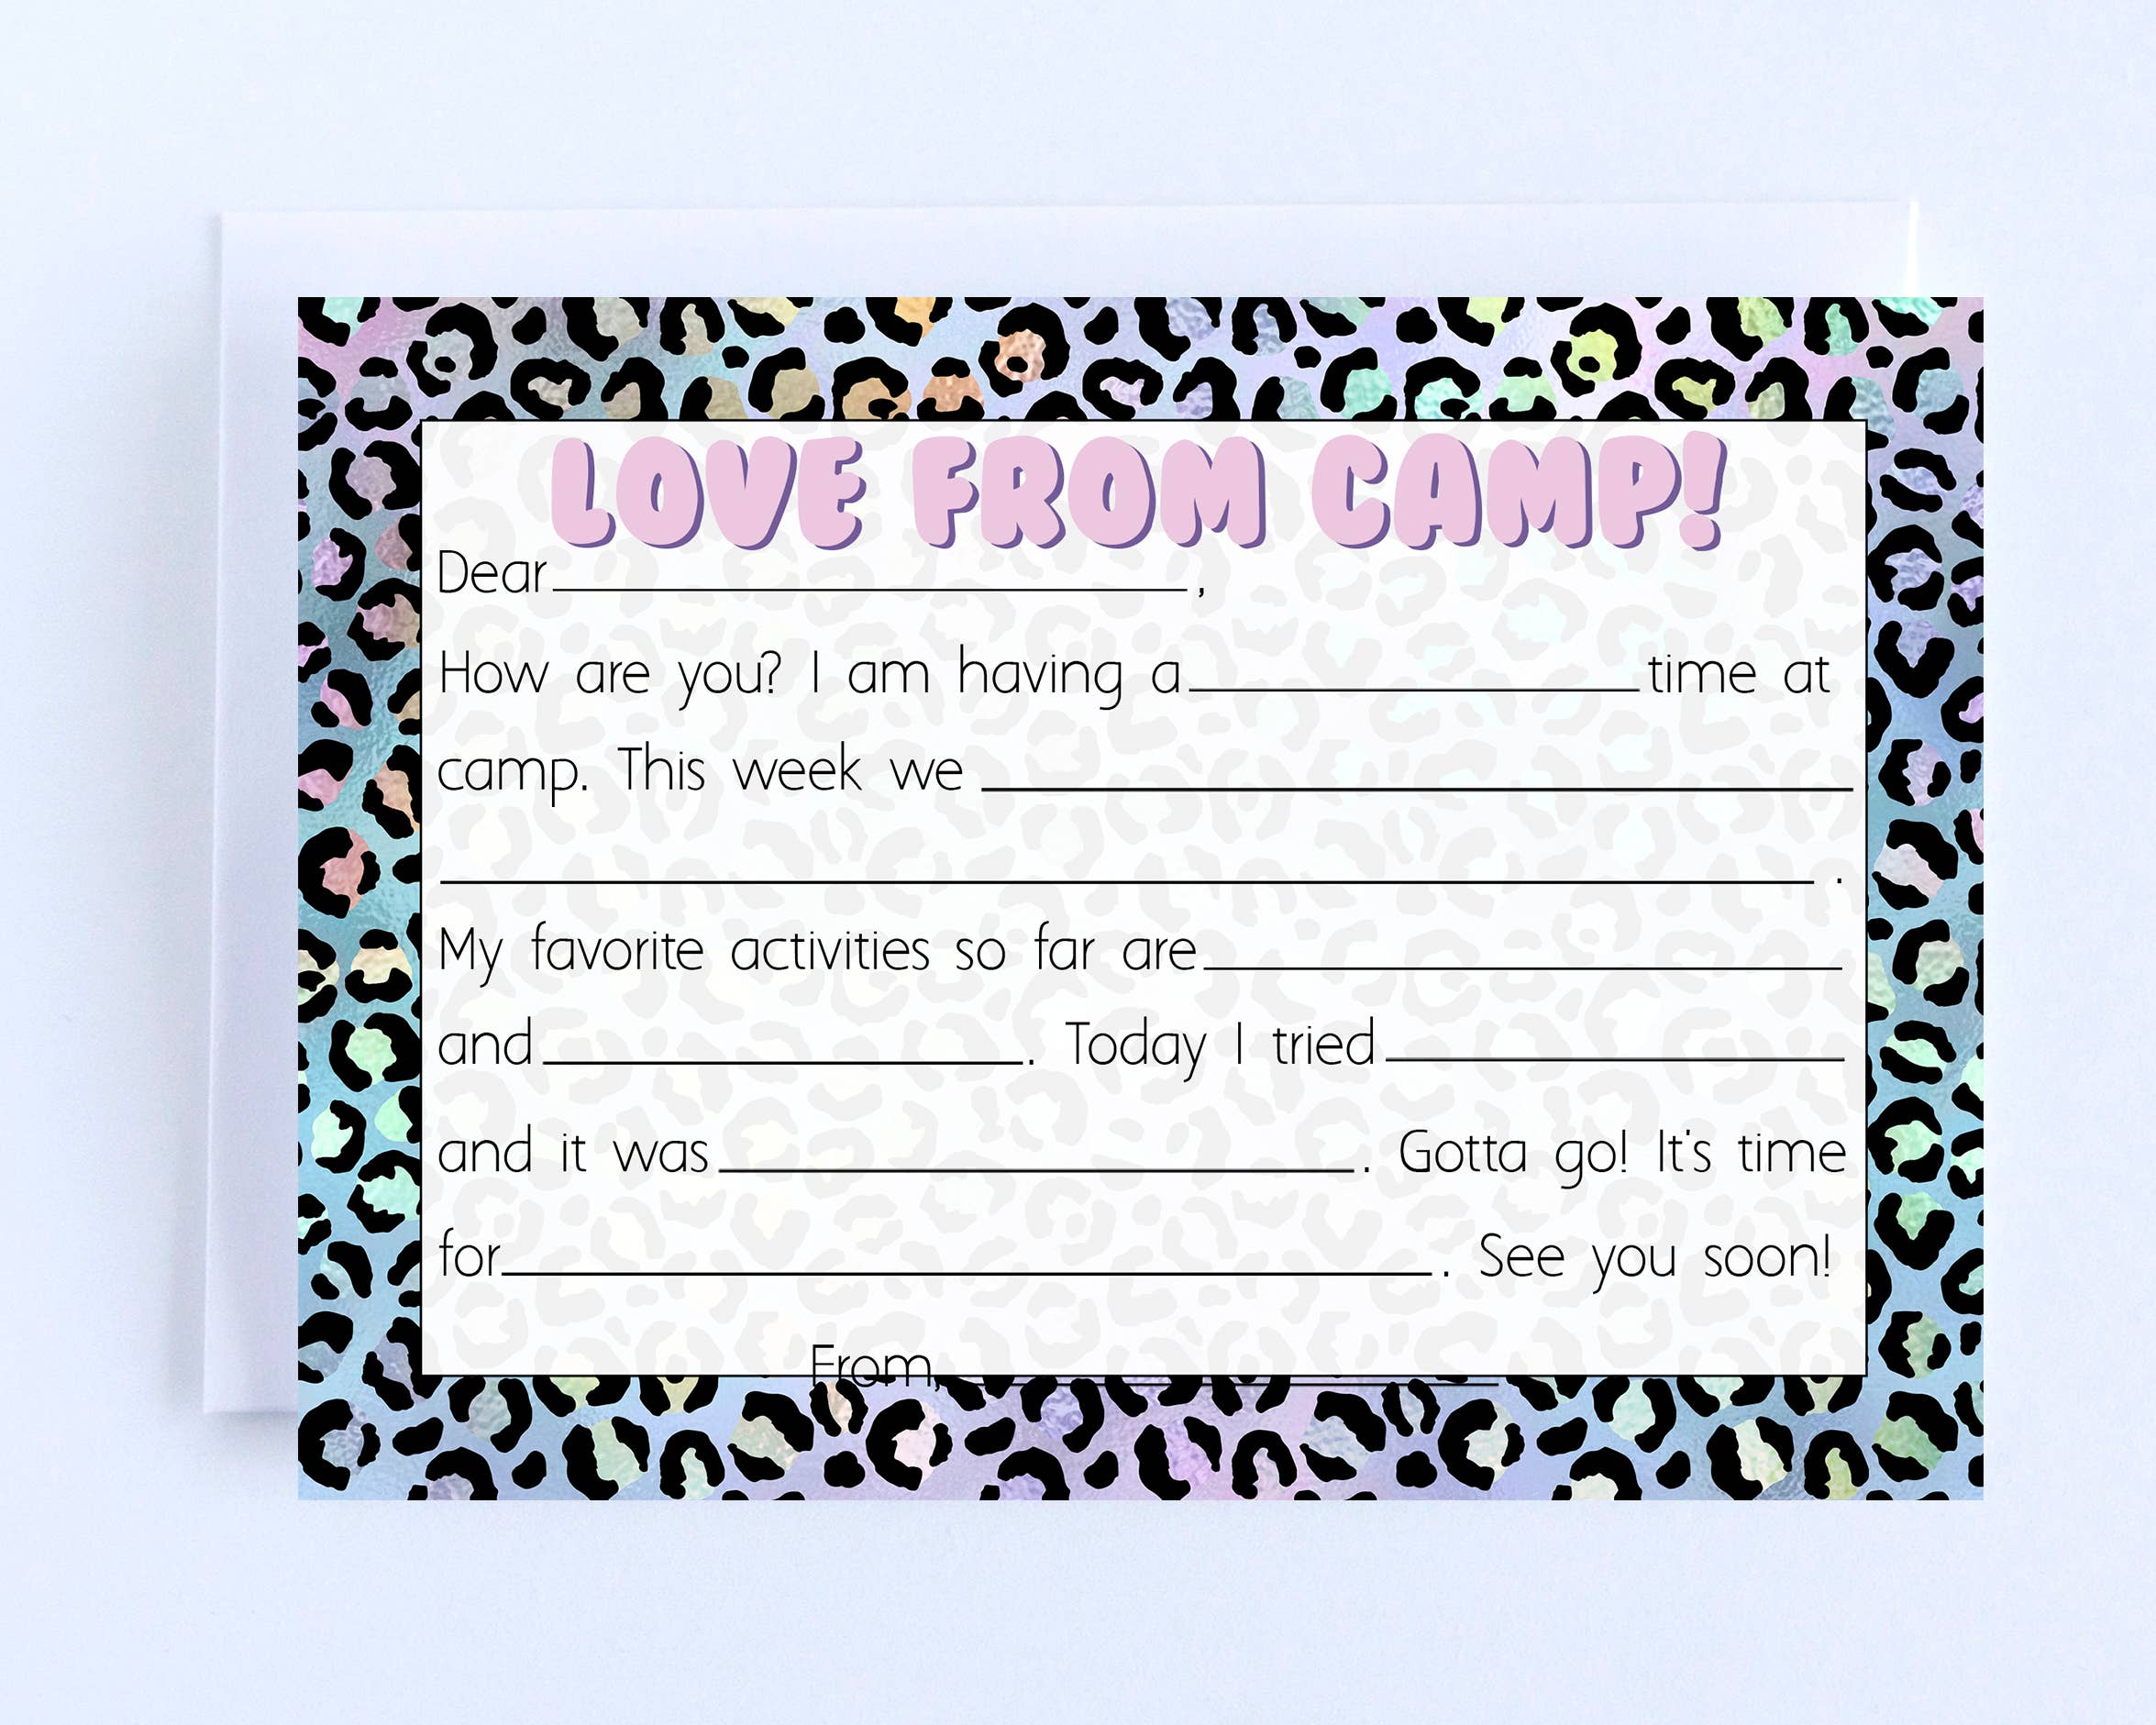 LOVE FROM CAMP!
Dear____________________,
How are you? I am having a______________time at
camp. This week we ___________________________
___________________________________________ .
My favorite activities so far are____________________
and_______________. Today I tried______________
and it was____________________. Gotta go! It's time
for_____________________________. See you soon!
From,__________________